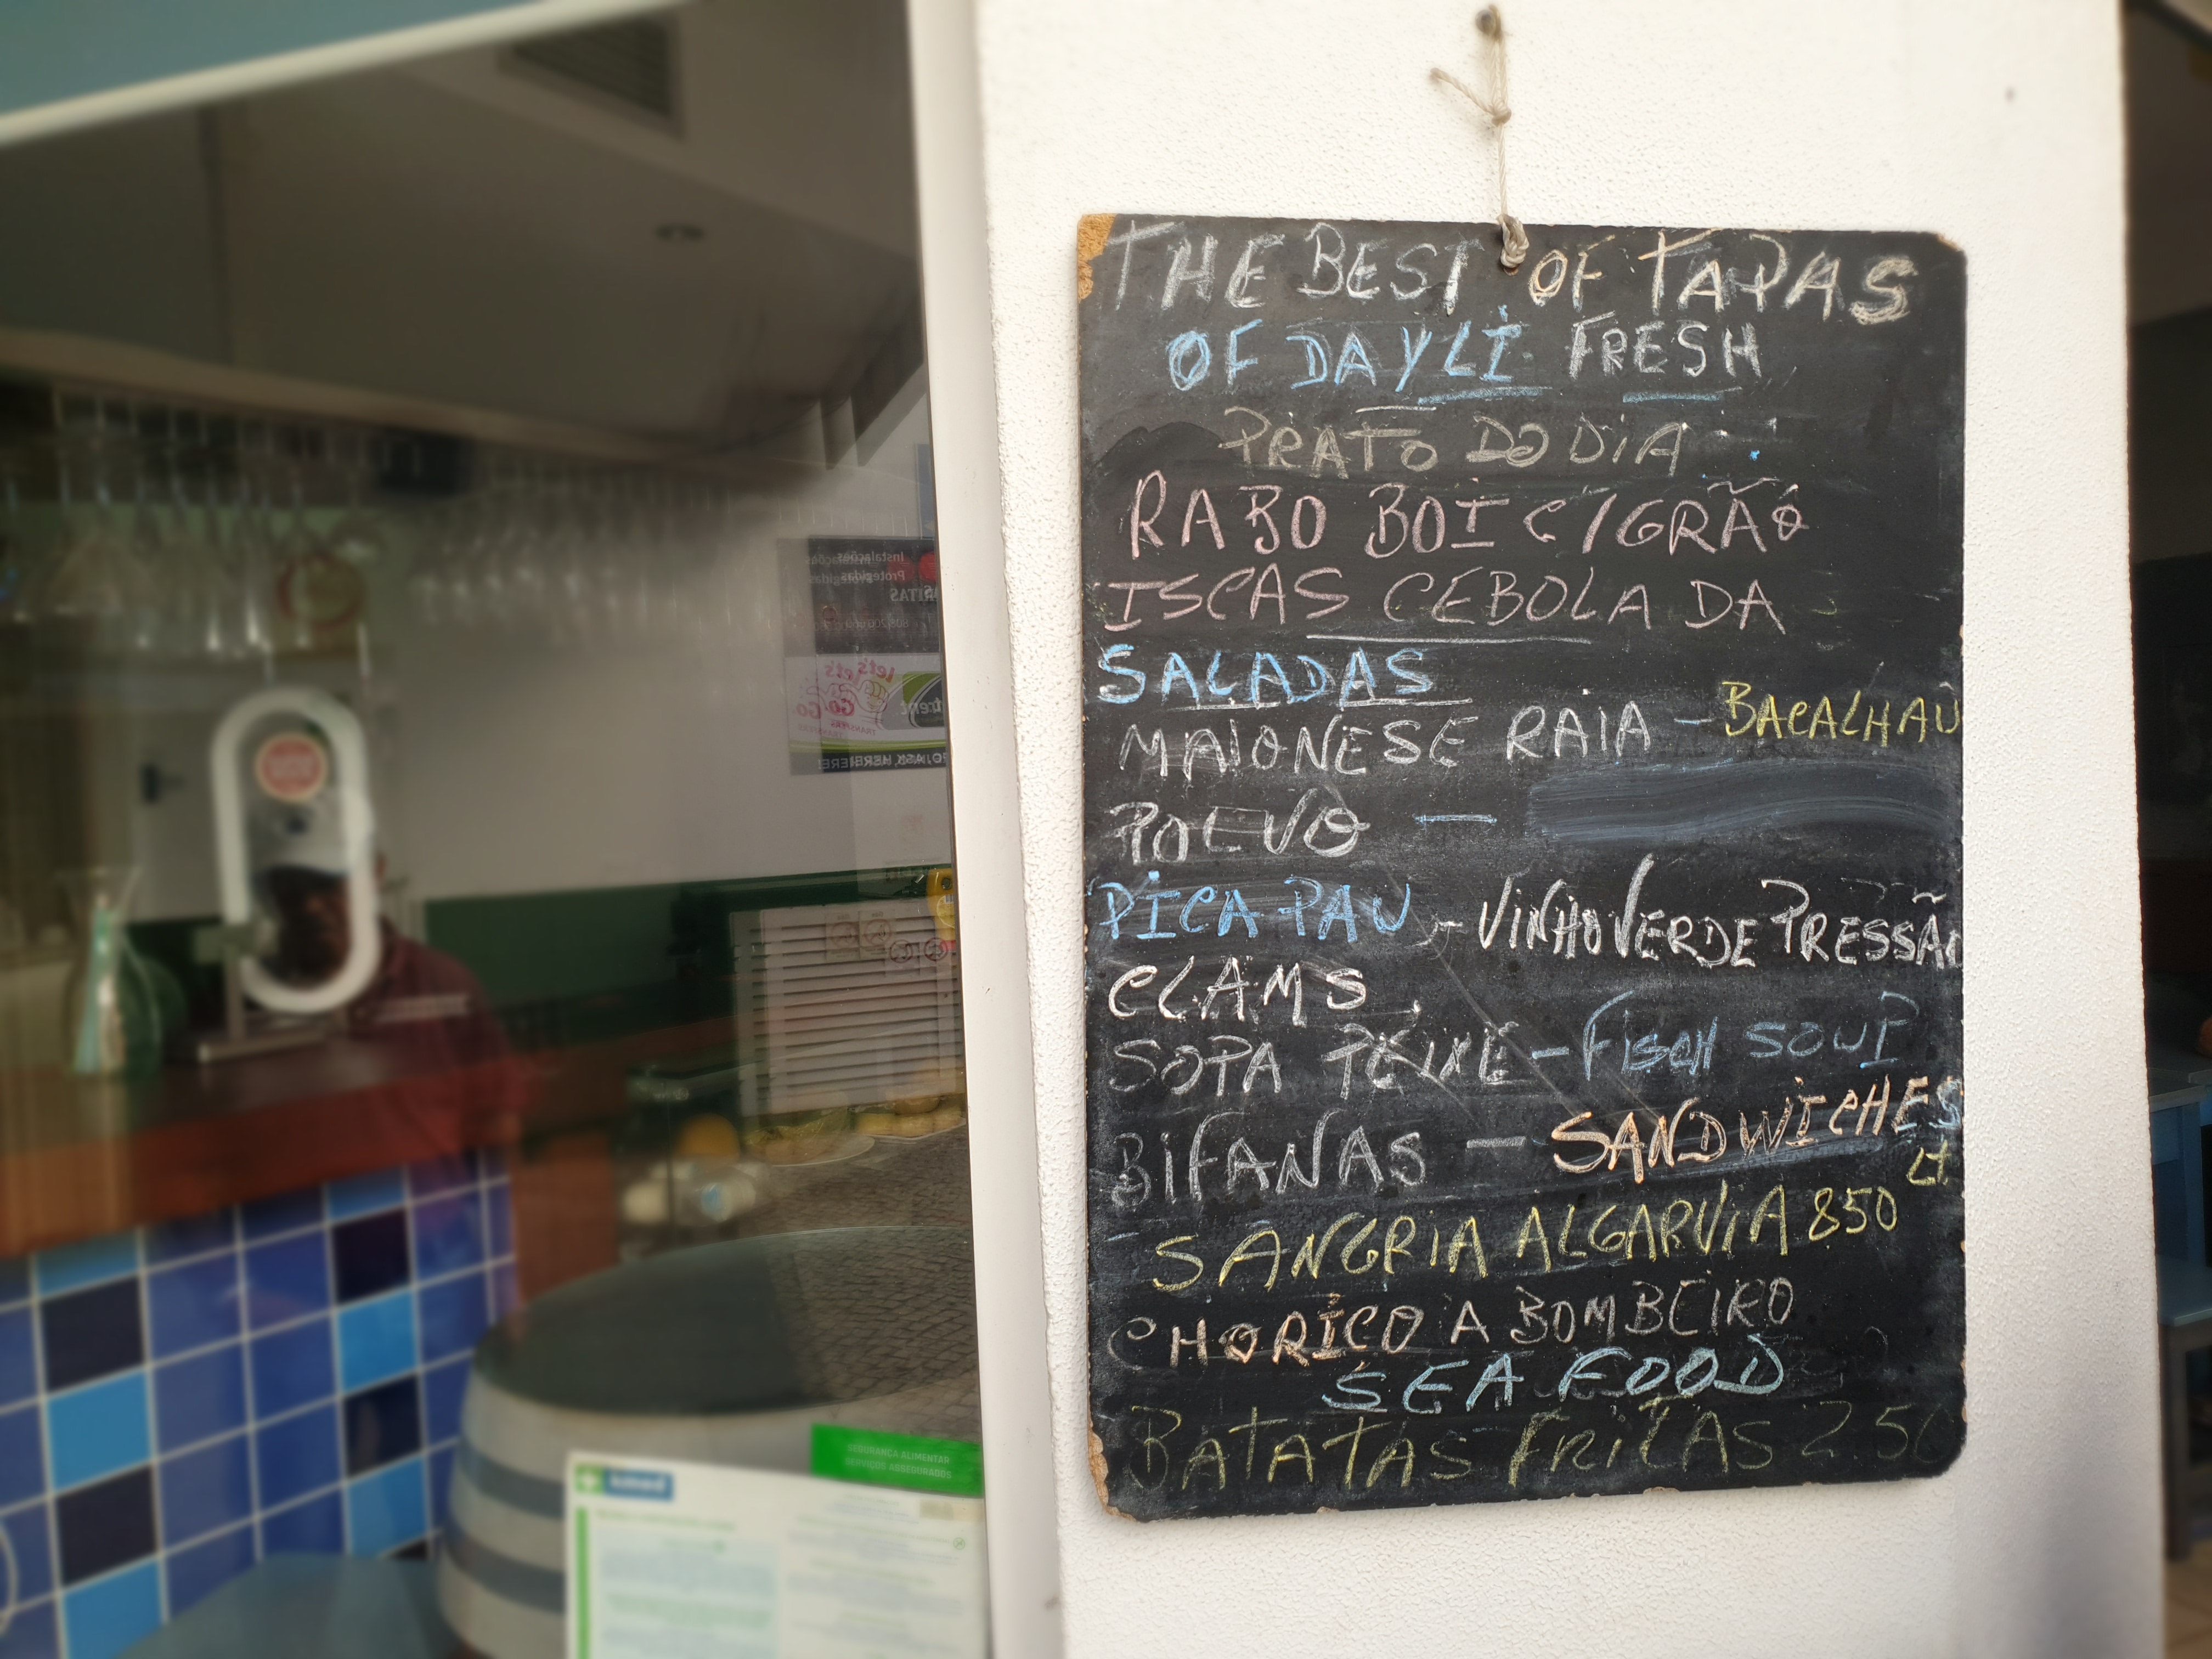 THE BEST OF TAPAS
OF DAYLI FRESH
PRATO DO DIA
RABO BOI C/GRÃO
ISCAS CEBOLADA
SALADAS
MAIONESE RAIA - BACALHAU
POLVO —
PICA PAU - VINHO VERDE PRESSÃO
CLAMS
SOPA PEIXE - FISCH SOUP
BIFANAS - SANDWICHES
SANGRIA ALGARVIA 850 LT
CHORIÇO A BOMBEIRO
SEA FOOD
BATATAS FRITAS 2.50
Instalações
Protegidas
SEGURANÇA ALIMENTAR
SERVIÇOS ASSEGURADOS